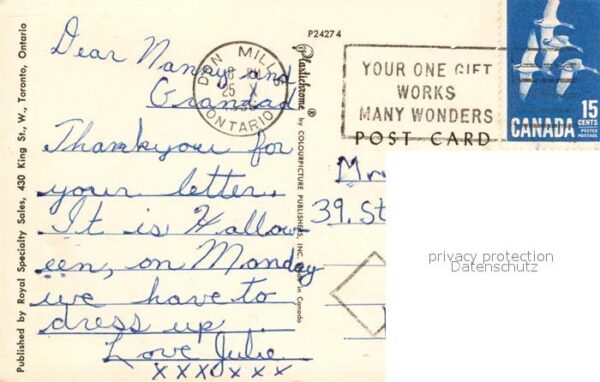 P24274
Dear Nanny and
Grandad
Thankyou for
your letter.
It is Hallow
een, on Monday
we have to
dress up
Love Julie
xxxxxxx
DON MILLS
25 X
ONTARIO
YOUR ONE GIFT
WORKS
MANY WONDERS
POST CARD
15
CENTS
POSTES
POSTAGE
CANADA
39. St
privacy protection
Datenschutz
Plastichrome ® by COLOURPICTURE PUBLISHERS, INC.
in Canada
Published by Royal Specialty Sales, 430 King St., W., Toronto, Ontario